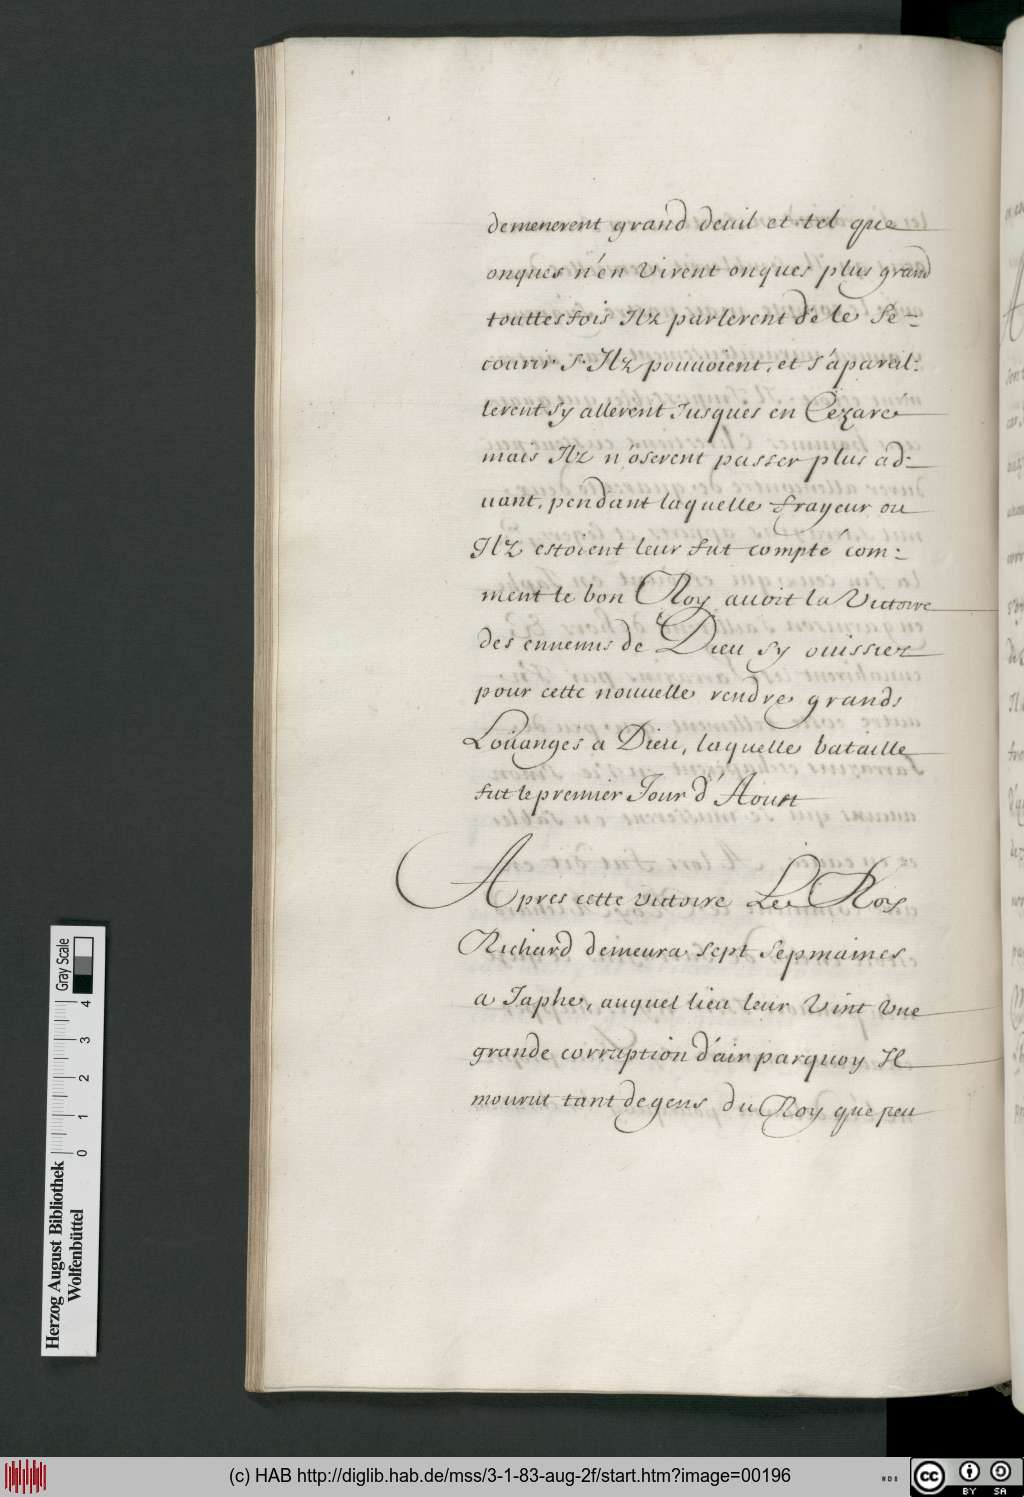 demenerent grand deuil et tel que
onques n'en virent onques plus grand
touttesfois Ilz parlerent de le se-
courir s'Ilz pouuoient, et s'apareil:
lerent sy allerent Jusques en Cezaré
mais Ilz n'oserent passer plus ad:
uant, pendant laquelle frayeur ou
Ilz estoient leur fut compté com:
ment le bon Roy auoit la Victoire
des ennemis de Dieu sy ouissiez
pour cette nouuelle rendre grands
Loüanges a Dieu, laquelle bataille
fut le premier Jour d'Aoust
Apres cette victoire Le Roy
Richard demeura sept sepmaines
a Japhe, auquel lieu leur Vint Vne
grande corruption d'air parquoy Il
mourut tant de gens du Roy que peu
Herzog August Bibliothek
Wolfenbüttel
0 1 2 3 4
Gray Scale
(c) HAB http://diglib.hab.de/mss/3-1-83-aug-2f/start.htm?image=00196
WDB
cc BY SA